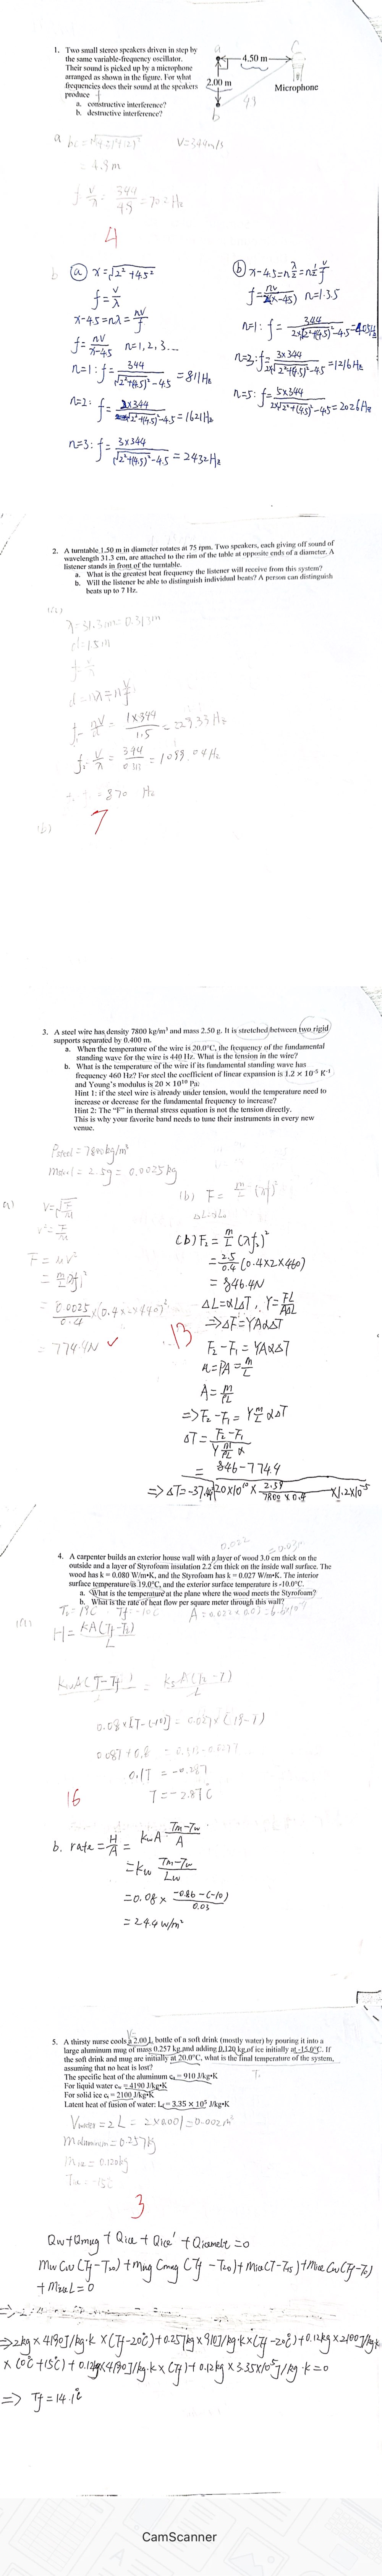 1. Two small stereo speakers driven in step by
the same variable-frequency oscillator.
Their sound is picked up by a microphone
arranged as shown in the figure. For what
frequencies does their sound at the speakers
produce
a. constructive interference?
b. destructive interference?
a
4.50 m
C
2.00 m
Microphone
b
V=344m/s
= 4.9m
4
b
(a) x=√2²+4.5²
f=V/λ
x-4.5=nλ=nV/f
f=nV/x-4.5 n=1,2,3...
n=1: f=344/√2²+(4.5)²-4.5=811Hz
n=2: f=2x344/√2²+(4.5)²-4.5=1621Hz
n=3: f=3x344/√2²+(4.5)²-4.5=2432Hz
(b) x-4.5=nλ/2=n½V/f
f=nV/2(x-4.5) n=1.3.5
n=1: f=344/2x√2²+(4.5)²-4.5
n=3: f=3x344/2x√2²+(4.5)²-4.5=1216Hz
n=5: f=5x344/2x√2²+(4.5)²-4.5=2026Hz
2. A turntable 1.50 m in diameter rotates at 75 rpm. Two speakers, each giving off sound of
wavelength 31.3 cm, are attached to the rim of the table at opposite ends of a diameter. A
listener stands in front of the turntable.
a. What is the greatest beat frequency the listener will receive from this system?
b. Will the listener be able to distinguish individual beats? A person can distinguish
beats up to 7 Hz.
λ=31.3cm=0.313m
d=1.5m
d=nλ=nV/f
f=nV/ = 1x344/1.5=229.33Hz
f=V/λ=344/0.313=1099.04Hz
=870 Hz
(b)
7
3. A steel wire has density 7800 kg/m³ and mass 2.50 g. It is stretched between two rigid
supports separated by 0.400 m.
a. When the temperature of the wire is 20.0°C, the frequency of the fundamental
standing wave for the wire is 440 Hz. What is the tension in the wire?
b. What is the temperature of the wire if its fundamental standing wave has
frequency 460 Hz? For steel the coefficient of linear expansion is 1.2 × 10⁻⁵ K⁻¹
and Young's modulus is 20 × 10¹⁰ Pa:
Hint 1: if the steel wire is already under tension, would the temperature need to
increase or decrease for the fundamental frequency to increase?
Hint 2: The "F" in thermal stress equation is not the tension directly.
This is why your favorite band needs to tune their instruments in every new
venue.
ρsteel=7800kg/m³
msteel=2.5g=0.0025kg
(a)
V=√F/μ
v²=F/μ
F=μv²
=m/L(λf)²
=0.0025/0.4x(0.4x2x440)²
=774.4N ✓
13
(b) F=m/L(λf)²
(b)F₂=m/L(λf₂)²
=2.5/0.4(0.4x2x460)
=846.4N
ΔL=αLΔT, Y=FL/AΔL
⇒ΔF=YAαΔT
F₂-F₁=YAαΔT
μ=ρA=m/L
A=m/ρL
⇒F₂-F₁=Y m/ρL αΔT
ΔT=F₂-F₁/Y m/ρL α
=846-774.4/20x10¹⁰x 2.5x/7800x0.4 x1.2x10⁻⁵
4. A carpenter builds an exterior home wall with a layer of wood 3.0 cm thick on the
outside and a layer of Styrofoam insulation 2.2 cm thick on the inside wall surface. The
wood has k = 0.080 W/m•K, and the Styrofoam has k = 0.027 W/m•K. The interior
surface temperature is 19.0°C, and the exterior surface temperature is -10.0°C.
a. What is the temperature at the plane where the wood meets the Styrofoam?
b. What is the rate of heat flow per square meter through this wall?
0.08x[T-(-10)]=0.027x(19-T)
T=-2.87°C
16
b. rate=H/A=kwA Tm-Tw/A
=kw Tm-Tw/Lw
=0.08x -0.86-(-10)/0.03
=24.4w/m²
5. A thirsty nurse cools a 2.00 L bottle of a soft drink (mostly water) by pouring it into a
large aluminum mug of mass 0.257 kg and adding 0.120 kg of ice initially at -15.0°C. If
the soft drink and mug are initially at 20.0°C, what is the final temperature of the system,
assuming that no heat is lost?
The specific heat of the aluminum cₐ = 910 J/kg•K
For liquid water cw = 4190 J/kg•K
For solid ice cs = 2100 J/kg•K
Latent heat of fusion of water: Lf= 3.35 × 10⁵ J/kg•K
Vwater=2L=2x0.001=0.002m³
maluminum=0.257kg
mice=0.120kg
3
Qw+Qmug+Qice+Qice'+Qicemelt=0
mwCw(Tf-T20)+mmugCmug(Tf-T20)+mice(T-T15)+miceCw(Tf-T0)
+miceL=0
⇒2kgx4190J/kg·kx(Tf-20°C)+0.257kgx910J/kg·kx(Tf-20°C)+0.12kgx2100J/kg·k
x(0°C+15°C)+0.12kgx4190J/kg·kx(Tf)+0.12kgx3.35x10⁵J/kg·k=0
⇒ Tf=14.1°C
CamScanner